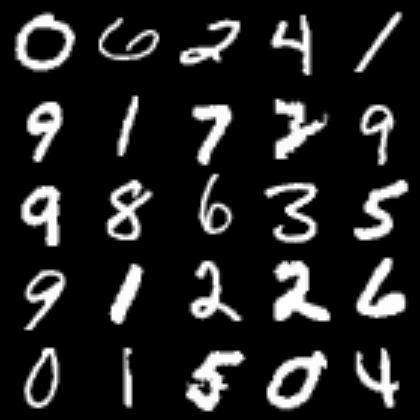 0 6 2 4 1
9 1 7 2 9
9 8 6 3 5
9 1 2 2 6
0 1 5 0 4